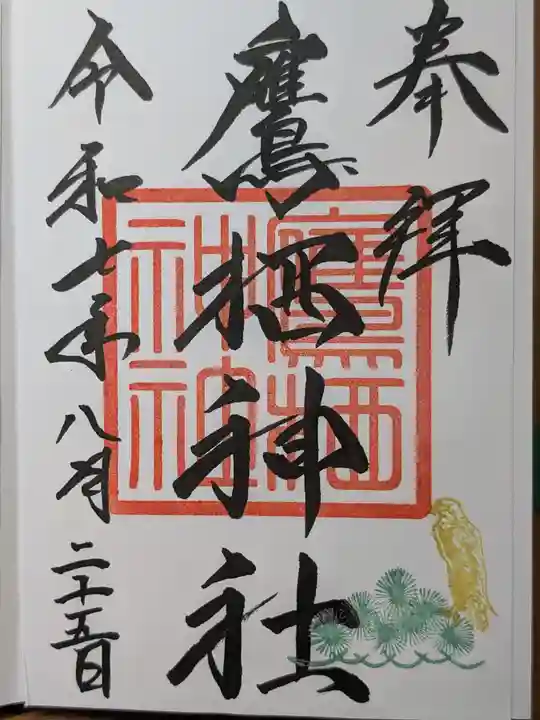 奉拝
鷹栖神社
令和七年八月二十五日
鷹栖
神社